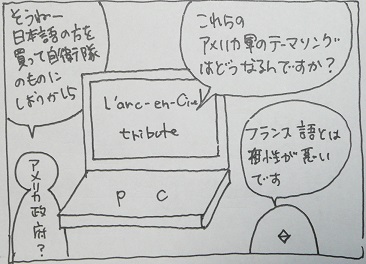 これらの
アメリカ軍のテーマソング
はどうなるんですか？
そうねー
日本語の方を
買って自衛隊
のものに
しようかしら
L'arc-en-Ciel
tribute
フランス語とは
相性が悪い
です
アメリカ政府？
PC